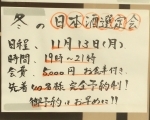 冬の日本酒選定会
日程、11月13日(月)
時間、19時〜21時
会費、5,000円 お食事付き
先着 名様 完全予約制!
ご予約はお早めに!!